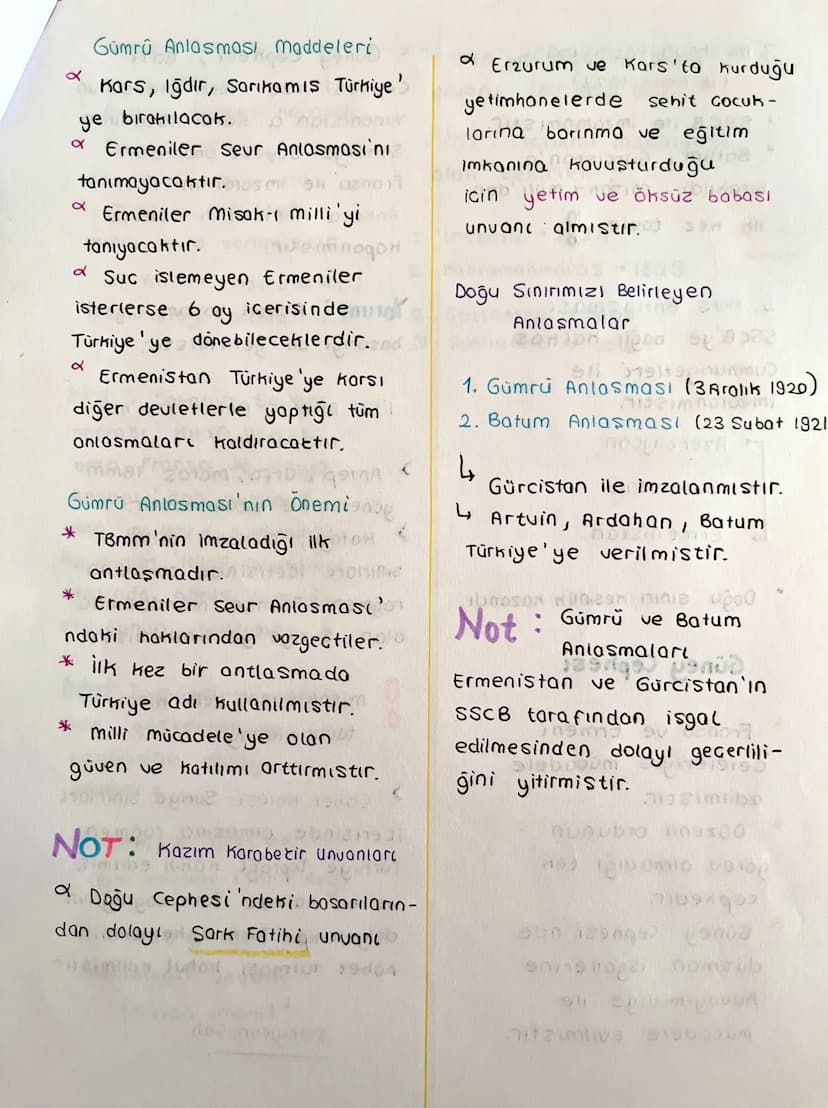 Gümrü Anlaşması Maddeleri
α Kars, Iğdır, Sarıkamış Türkiye'
ye bırakılacak.
α Ermeniler Sevr Anlaşması'nı
tanımayacaktır.
α Ermeniler Misak-ı Milli'yi
tanıyacaktır.
α Suç işlemeyen Ermeniler
isterlerse 6 ay içerisinde
Türkiye'ye dönebileceklerdir.
α Ermenistan Türkiye'ye karşı
diğer devletlerle yaptığı tüm
anlaşmaları kaldıracaktır.
Gümrü Anlaşması'nın Önemi
* TBMM'nin imzaladığı ilk
antlaşmadır.
* Ermeniler Sevr Anlaşması'
ndaki haklarından vazgeçtiler.
* İlk kez bir antlaşmada
Türkiye adı kullanılmıştır.
* Milli Mücadele'ye olan
güven ve katılımı arttırmıştır.
NOT: Kazım Karabekir Unvanları
α Doğu Cephesi'ndeki başarıların-
dan dolayı Şark Fatihi unvanı
α Erzurum ve Kars'ta kurduğu
yetimhanelerde şehit çocuk-
larına barınma ve eğitim
imkanına kavuşturduğu
için yetim ve öksüz babası
unvanı almıştır.
Doğu Sınırımızı Belirleyen
Anlaşmalar
1. Gümrü Anlaşması (3 Aralık 1920)
2. Batum Anlaşması (23 Şubat 1921
↳ Gürcistan ile imzalanmıştır.
↳ Artvin, Ardahan, Batum
Türkiye'ye verilmiştir.
Not: Gümrü ve Batum
Anlaşmaları
Ermenistan ve Gürcistan'ın
SSCB tarafından işgal
edilmesinden dolayı geçerlili-
ğini yitirmiştir.